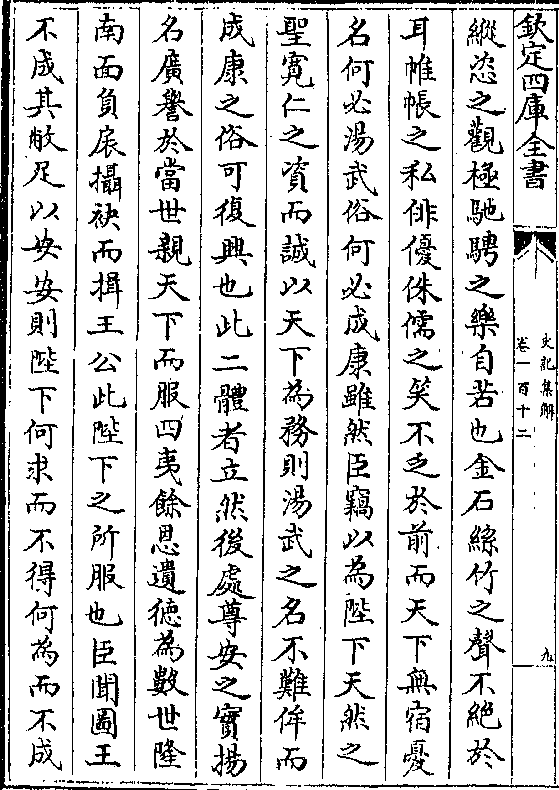 欽定四庫全書
史記集解
卷一百十二
九
縱恣之觀極馳騁之樂自若也金石絲竹之聲不絕於
耳帷帳之私俳優侏儒之笑不乏於前而天下無宿憂
名何必湯武俗何必成康雖然臣竊以為陛下天然之
聖寛仁之資而誠以天下為務則湯武之名不難侔而
成康之俗可復興也此二體者立然後處尊安之實揚
名廣譽於當世親天下而服四夷餘恩遺德為數世隆
南面負扆攝袂而揖王公此陛下之所服也臣聞圖王
不成其敝足以安安則陛下何求而不得何為而不成